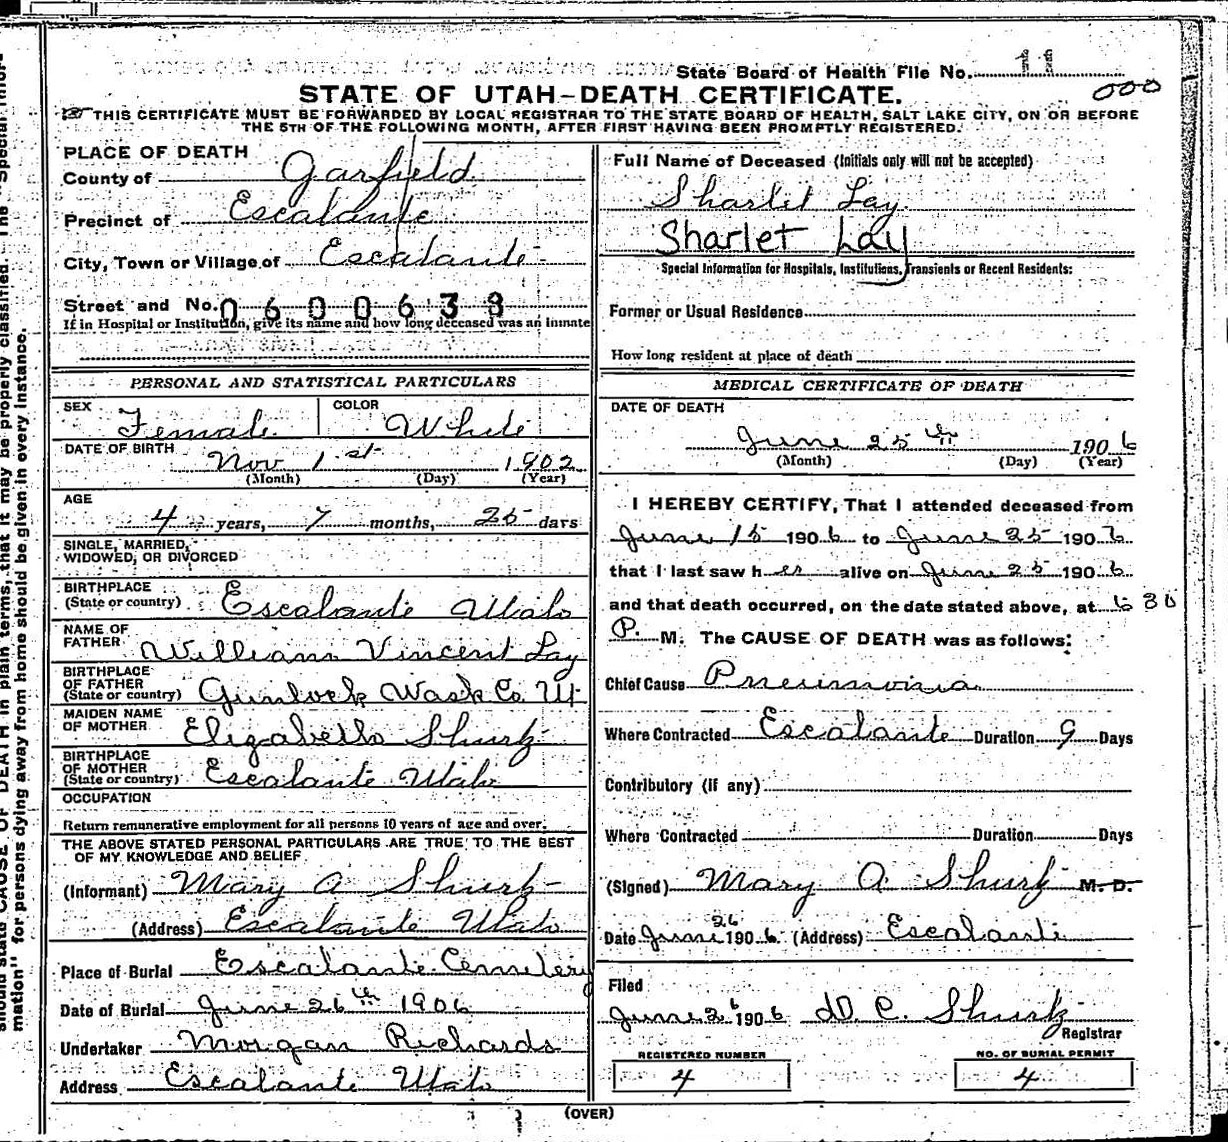 State Board of Health File No. 11
000
STATE OF UTAH—DEATH CERTIFICATE.
THIS CERTIFICATE MUST BE FORWARDED BY LOCAL REGISTRAR TO THE STATE BOARD OF HEALTH, SALT LAKE CITY, ON OR BEFORE
THE 5TH OF THE FOLLOWING MONTH, AFTER FIRST HAVING BEEN PROMPTLY REGISTERED.
PLACE OF DEATH
County of Garfield
Precinct of Escalante
City, Town or Village of Escalante
Street and No. 0600638
If in Hospital or Institution, give its name and how long deceased was an inmate
PERSONAL AND STATISTICAL PARTICULARS
SEX Female COLOR White
DATE OF BIRTH Nov 1st 1902
(Month) (Day) (Year)
AGE
4 years, 7 months, 25 days
SINGLE, MARRIED,
WIDOWED, OR DIVORCED
BIRTHPLACE
(State or country) Escalante Utah
NAME OF
FATHER William Vincent Lay
BIRTHPLACE
OF FATHER
(State or country) Gunlock Wash Co. Ut
MAIDEN NAME
OF MOTHER Elizabeth Shurtz
BIRTHPLACE
OF MOTHER
(State or country) Escalante Utah
OCCUPATION
Return remunerative employment for all persons 10 years of age and over.
THE ABOVE STATED PERSONAL PARTICULARS ARE TRUE TO THE BEST
OF MY KNOWLEDGE AND BELIEF
(Informant) Mary A Shurtz
(Address) Escalante Utah
Place of Burial Escalante Cemetery
Date of Burial June 26th 1906
Undertaker Morgan Richards
Address Escalante Utah
Full Name of Deceased (Initials only will not be accepted)
Sharlit Lay
Sharlet Lay
Special Information for Hospitals, Institutions, Transients or Recent Residents:
Former or Usual Residence
How long resident at place of death
MEDICAL CERTIFICATE OF DEATH
DATE OF DEATH
June 25th 1906
(Month) (Day) (Year)
I HEREBY CERTIFY, That I attended deceased from
June 15 1906 to June 25 1906
that I last saw her alive on June 25 1906
and that death occurred, on the date stated above, at 6 30
P. M. The CAUSE OF DEATH was as follows:
Chief Cause Pneumonia
Where Contracted Escalante Duration 9 Days
Contributory (if any)
Where Contracted Duration Days
(Signed) Mary A Shurtz M. D.
Date June 26 1906 (Address) Escalante
Filed
June 26 1906 D. C. Shurtz
Registrar
REGISTERED NUMBER
4
NO. OF BURIAL PERMIT
4
(OVER)
should state CAUSE OF DEATH in plain terms, that it may be properly classified. The "Special Infor-
mation" for persons dying away from home should be given in every instance.